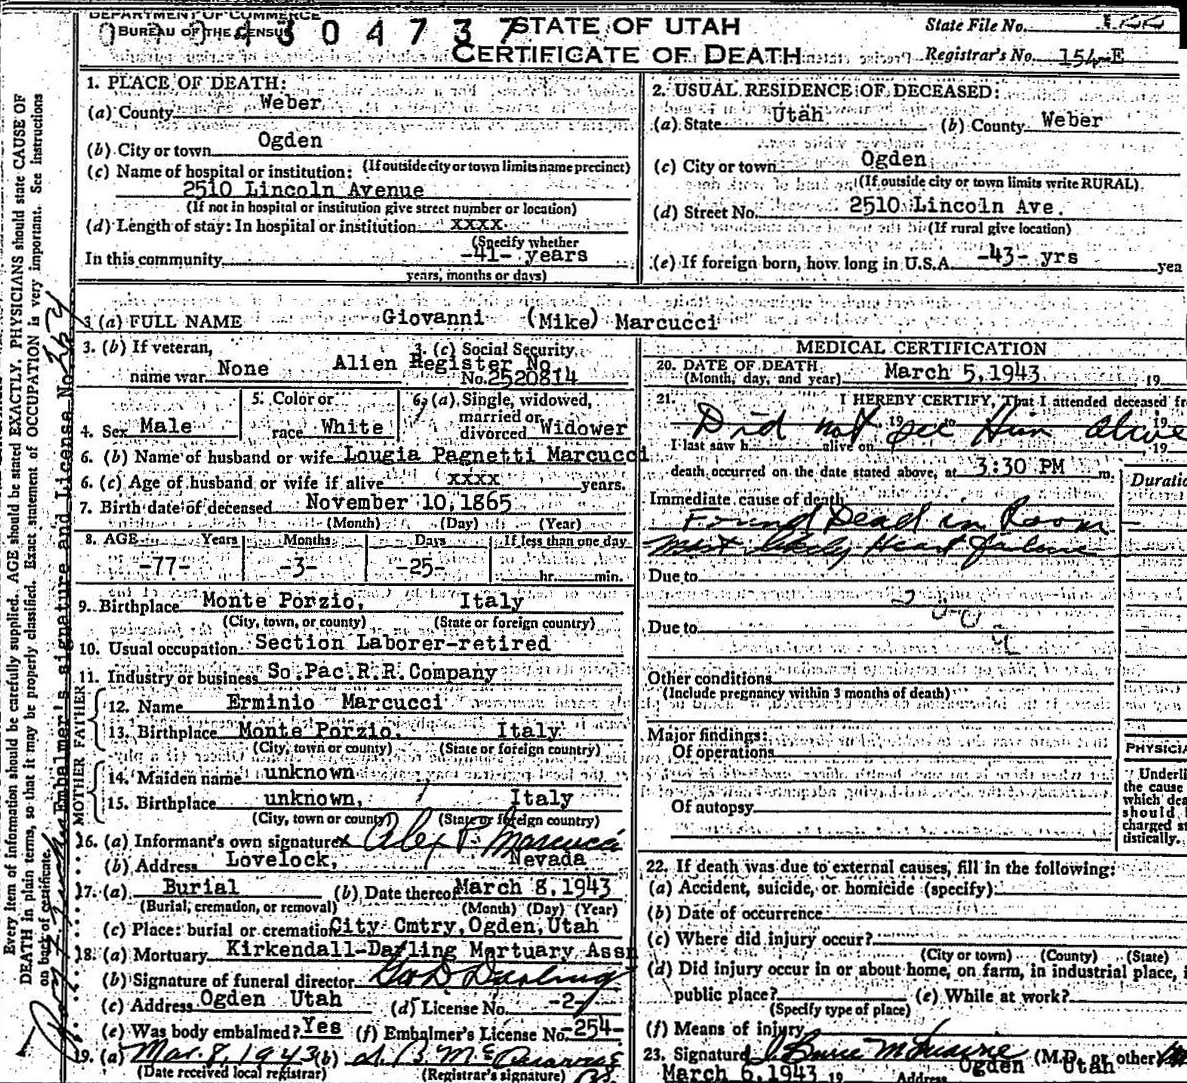 DEPARTMENT OF COMMERCE
BUREAU OF THE CENSUS
4304737
STATE OF UTAH
CERTIFICATE OF DEATH
State File No.
Registrar's No. 154-E
1. PLACE OF DEATH:
(a) County Weber
(b) City or town Ogden
(If outside city or town limits name precinct)
(c) Name of hospital or institution:
2510 Lincoln Avenue
(If not in hospital or institution give street number or location)
(d) Length of stay: In hospital or institution xxxx
(Specify whether
In this community -41- years
years, months or days)
2. USUAL RESIDENCE OF DECEASED:
(a) State Utah (b) County Weber
(c) City or town Ogden
(If outside city or town limits write RURAL)
(d) Street No. 2510 Lincoln Ave.
(If rural give location)
(e) If foreign born, how long in U.S.A. -43- yrs yea
3 (a) FULL NAME Giovanni (Mike) Marcucci
3. (b) If veteran, name war None
3. (c) Social Security No.
Alien Register No. 2520814
4. Sex Male
5. Color or race White
6. (a) Single, widowed, married or divorced Widower
6. (b) Name of husband or wife Lougia Pagnetti Marcucci
6. (c) Age of husband or wife if alive xxxx years.
7. Birth date of deceased November 10, 1865
(Month) (Day) (Year)
8. AGE Years Months Days If less than one day
-77- -3- -25- hr. min.
9. Birthplace Monte Porzio, Italy
(City, town, or county) (State or foreign country)
10. Usual occupation Section Laborer-retired
11. Industry or business So.Pac.R.R.Company
FATHER
12. Name Erminio Marcucci
13. Birthplace Monte Porzio. Italy
(City, town or county) (State or foreign country)
MOTHER
14. Maiden name unknown
15. Birthplace unknown, Italy
(City, town or county) (State or foreign country)
16. (a) Informant's own signature x Alex P. Marcucci
(b) Address Lovelock, Nevada
17. (a) Burial (b) Date thereof March 8, 1943
(Burial, cremation, or removal) (Month) (Day) (Year)
(c) Place: burial or cremation City Cmtry, Ogden, Utah
18. (a) Mortuary Kirkendall-Darling Mortuary Assn
(b) Signature of funeral director Geo D Darling
(c) Address Ogden Utah (d) License No. -2-
(e) Was body embalmed? Yes (f) Embalmer's License No. -254-
19. (a) Mar. 8, 1943 (b)
(Date received local registrar) (Registrar's signature)
MEDICAL CERTIFICATION
20. DATE OF DEATH
(Month, day, and year) March 5, 1943 19
21. I HEREBY CERTIFY, That I attended deceased fr
Did not see Him alive
19 19
I last saw h alive on 19
death occurred on the date stated above, at 3:30 PM m.
Duratio
Immediate cause of death
Found Dead in Room
Most likely Heart failure
Due to
Due to
Other conditions
(Include pregnancy within 3 months of death)
Major findings:
Of operations
Of autopsy
PHYSICIA
Underli
the cause
which dea
should
charged st
tistically.
22. If death was due to external causes, fill in the following:
(a) Accident, suicide, or homicide (specify)
(b) Date of occurrence
(c) Where did injury occur?
(City or town) (County) (State)
(d) Did injury occur in or about home, on farm, in industrial place, i
public place? (e) While at work?
(Specify type of place)
(f) Means of injury
23. Signature (M.D. or other)
March 6, 1943 19 Address Ogden Utah
Every item of information should be carefully supplied. AGE should be stated EXACTLY. PHYSICIANS should state CAUSE OF
DEATH in plain terms, so that it may be properly classified. Exact statement of OCCUPATION is very important. See instructions
on back of certificate.
Embalmer's signature and License No.